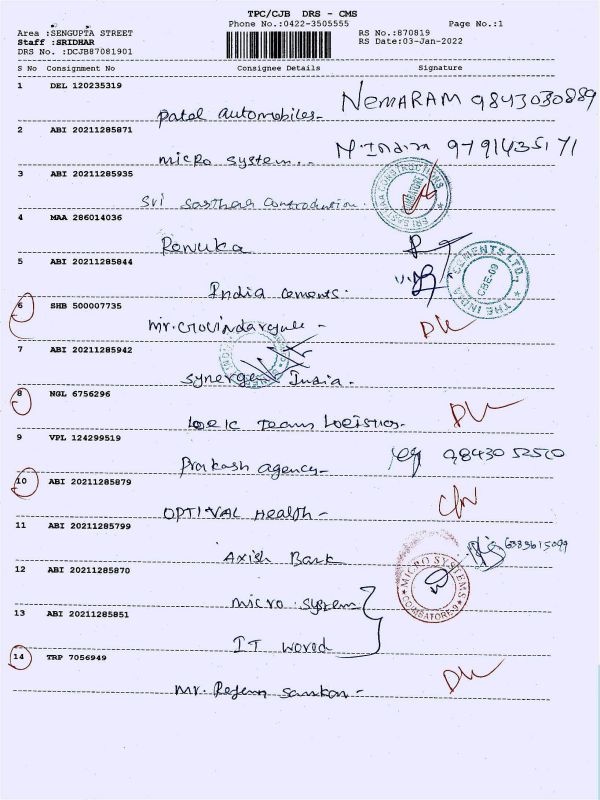 TPC/CJB DRS - CMS
Phone No.:0422-3505555
Page No.:1
Area :SENGUPTA STREET
Staff :SRIDHAR
DRS No. :DCJB87081901
RS No.:870819
RS Date:03-Jan-2022
S No Consignment No Consignee Details Signature
1 DEL 120235319
Patal automobiles- NEMARAM 9843030889
2 ABI 20211285871
micro system.. 9791435171
3 ABI 20211285935
Sri Sasthaa
SRI SASTHAA CONSTRUCTIONS
4 MAA 286014036
Renuka
5 ABI 20211285844
India cements.
THE INDIA CEMENTS LTD.
CBE-09
6 SHB 500007735
7 ABI 20211285942
Synerge India.
8 NGL 6756296
Logic Team Logistics-
9 VPL 124299519
Prakash agency-
10 ABI 20211285879
OPTIVAL Health-
11 ABI 20211285799
Axish Bank
12 ABI 20211285870
micro system
MICRO SYSTEMS
COIMBATORE-9
13 ABI 20211285851
IT
14 TRP 7056949